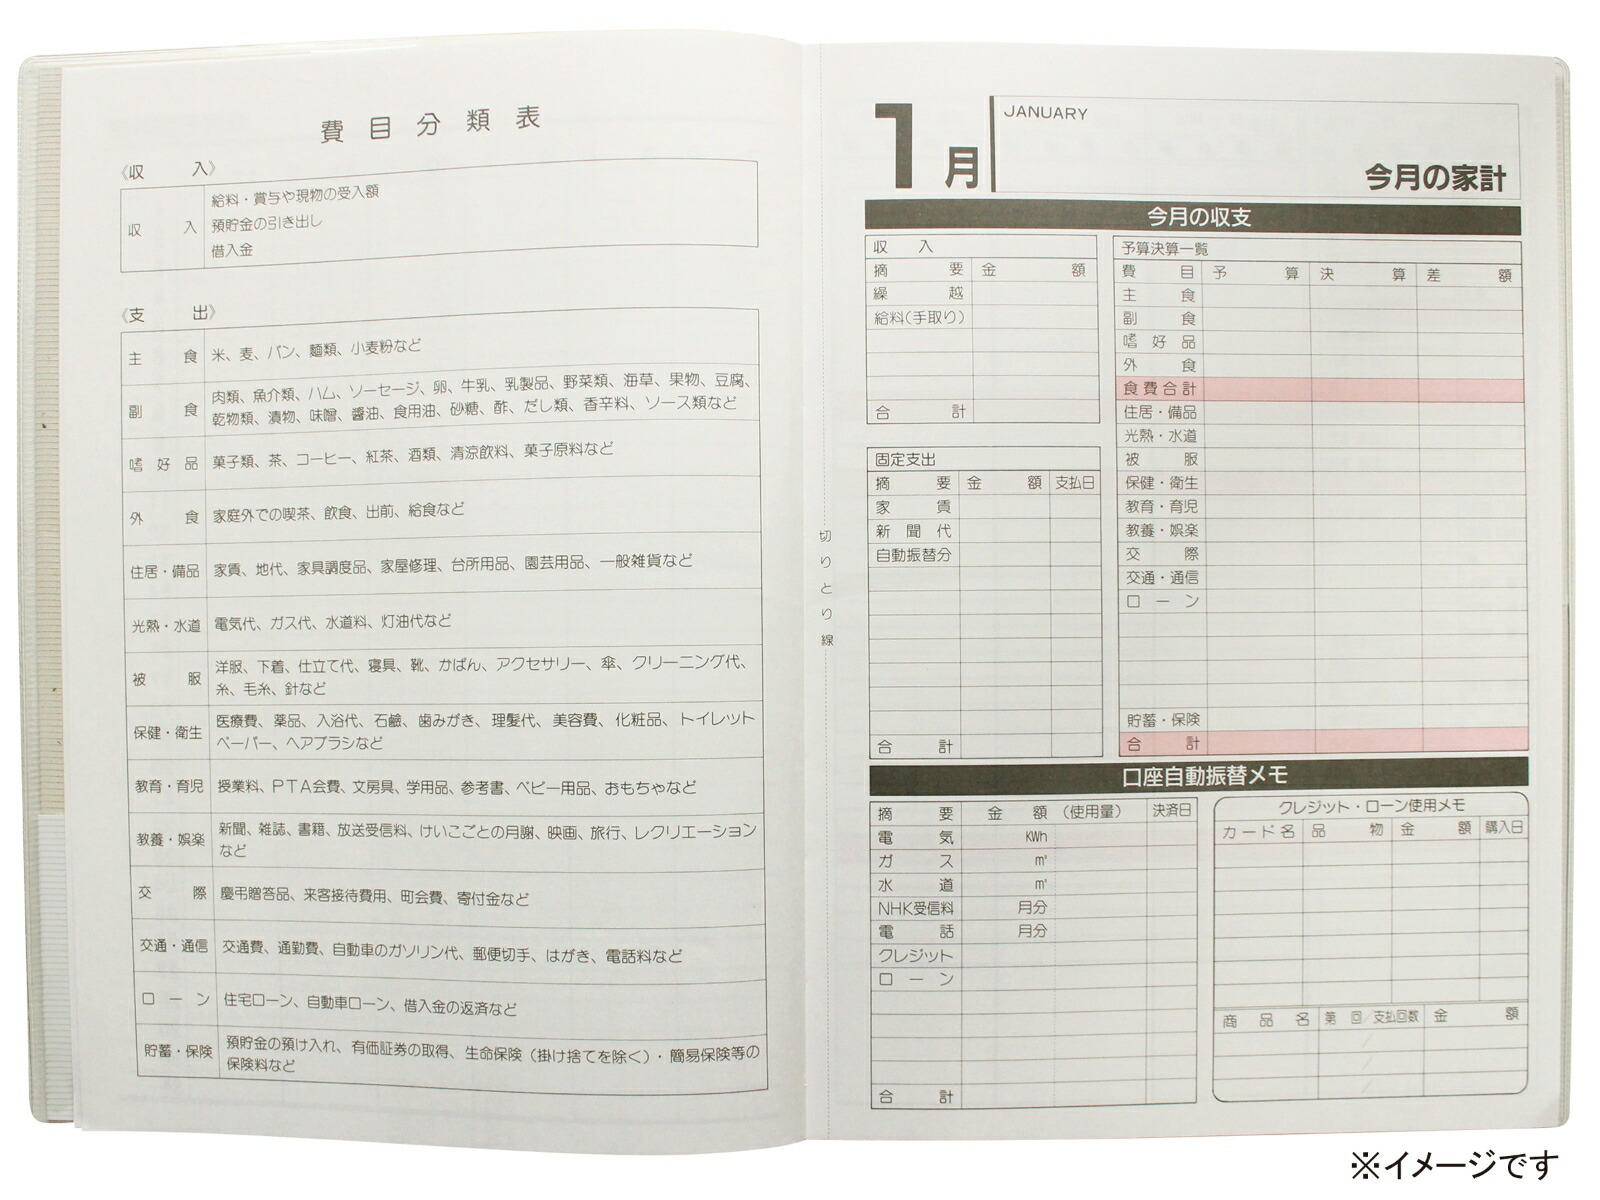 費目分類表
《収入》
収入
給料・賞与や現物の受入額
預貯金の引き出し
借入金
《支出》
主食 米、麦、パン、麺類、小麦粉など
副食 肉類、魚介類、ハム、ソーセージ、卵、牛乳、乳製品、野菜類、海草、果物、豆腐、
乾物類、漬物、味噌、醤油、食用油、砂糖、酢、だし類、香辛料、ソース類など
嗜好品 菓子類、茶、コーヒー、紅茶、酒類、清涼飲料、菓子原料など
外食 家庭外での喫茶、飲食、出前、給食など
住居・備品 家賃、地代、家具調度品、家屋修理、台所用品、園芸用品、一般雑貨など
光熱・水道 電気代、ガス代、水道料、灯油代など
被服 洋服、下着、仕立て代、寝具、靴、かばん、アクセサリー、傘、クリーニング代、
糸、毛糸、針など
保健・衛生 医療費、薬品、入浴代、石鹸、歯みがき、理髪代、美容費、化粧品、トイレット
ペーパー、ヘアブラシなど
教育・育児 授業料、PTA会費、文房具、学用品、参考書、ベビー用品、おもちゃなど
教養・娯楽 新聞、雑誌、書籍、放送受信料、けいこごとの月謝、映画、旅行、レクリエーション
など
交際 慶弔贈答品、来客接待費用、町会費、寄付金など
交通・通信 交通費、通勤費、自動車のガソリン代、郵便切手、はがき、電話料など
ローン 住宅ローン、自動車ローン、借入金の返済など
貯蓄・保険 預貯金の預け入れ、有価証券の取得、生命保険（掛け捨てを除く）・簡易保険等の
保険料など
切りとり線
1月
JANUARY
今月の家計
今月の収支
収入
摘要 金額
繰越
給料（手取り）
合計
固定支出
摘要 金額 支払日
家賃
新聞代
自動振替分
合計
予算決算一覧
費目 予算 決算 差額
主食
副食
嗜好品
外食
食費合計
住居・備品
光熱・水道
被服
保健・衛生
教育・育児
教養・娯楽
交際
交通・通信
ローン
貯蓄・保険
合計
口座自動振替メモ
摘要 金額（使用量） 決済日
電気 KWh
ガス ㎥
水道 ㎥
NHK受信料 月分
電話 月分
クレジット
ローン
合計
クレジット・ローン使用メモ
カード名 品物 金額 購入日
商品名 第 回／支払回数 金額
／
／
／
※イメージです